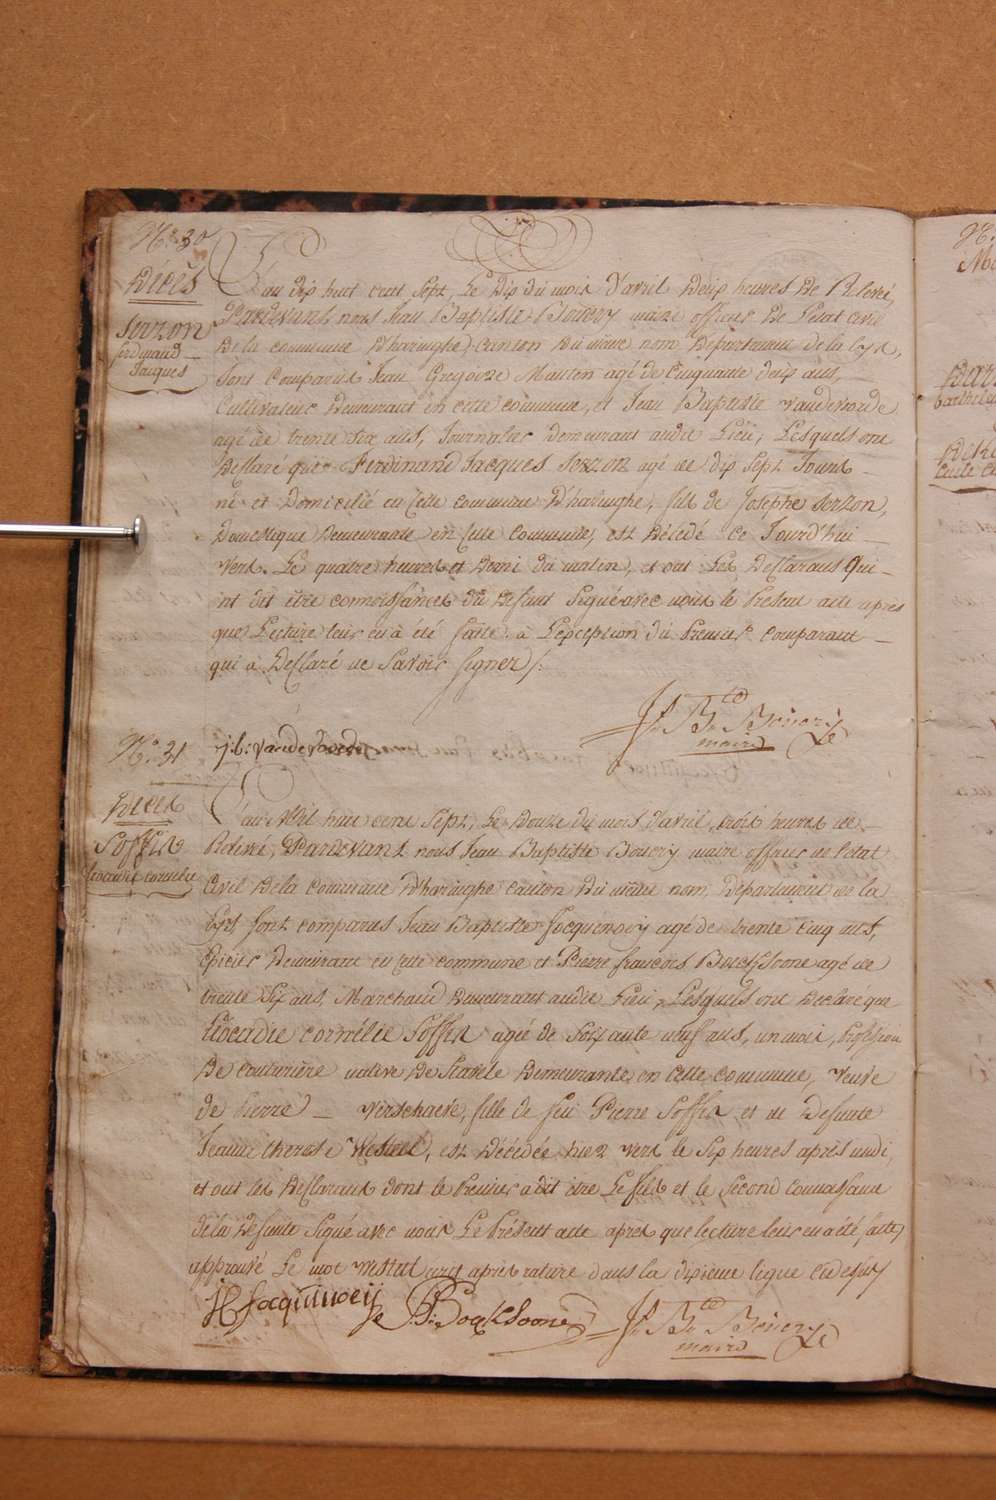 N.º 30
Décès
Sorzon
ferdinand
Jacques
L'au dix huit cent Sept, Le Dix du mois d'avril à Deux heures de Relevé,
Pardevant nous Jean Baptiste Bouery maire officier De l'état civil
De la commune D'haringhe, canton du même nom Département de la Lys,
Sont Comparus Jean Gregoire Mauten agé de Cinquante Deux ans,
Cultivateur Demeurant en cette commune, et Jean Baptiste vandevoorde
agé de trente Six ans, Journalier demeurant audit Lieu, Lesquels ont
Déclaré que Ferdinand Jacques Sorzon agé de dix Sept Jours
né et Domicilié en cette commune D'haringhe, fils de Josephe Sorzon,
Domestique Demeurante en cette commune, est Décédé ce Jourd'hui
vers Le quatre heures et Demi du matin, et ont Les Déclarans Qui
ont dit être connoissances du Défunt Signé avec nous le Présent acte après
que Lecture leur en à été faite à L'exception du Premier comparant
qui à Déclaré ne Savoir Signer /.
j: b: vandevoorde
J. Bte Bouery
maire
N.º 31
Décès
Soffis
Leocadie cornelie
L'an Mil huit cent Sept, Le Douze du mois d'avril, trois heures de
Relevé, Pardevant nous Jean Baptiste Bouery maire officier de l'etat
Civil De la commune D'haringhe canton Du même nom, Département de la
Lys, Sont comparus Jean Baptiste Jocquinoey agé de trente cinq ans,
Epicier Demeurant en cette commune et Pierre francois Bucksoone agé de
trente Six ans, Marchand Demeurant audit Lieu, Lesquels ont Declaré que
Leocadie cornélie Soffis agée de Soixante neuf ans, un mois, Profession
De couturière native De Stavele Demeurante en Cette commune, veuve
de Pierre Verschaeve, fille de feu Pierre Soffis et de Defunte
Jeanne therese Westeel, est Décédée hier vers le Six heures après midi,
et ont les Déclarans dont le Premier à dit être Le fils et le Second Connoissance
de la Defunte Signé avec nous Le Présent acte après que lecture leur en a été faite,
approuvé Le mot Westeel écrit après rature dans la dixieme ligne
JB Jocquinoeij
P: Bocksoone
J. Bte Bouery
maire
N.